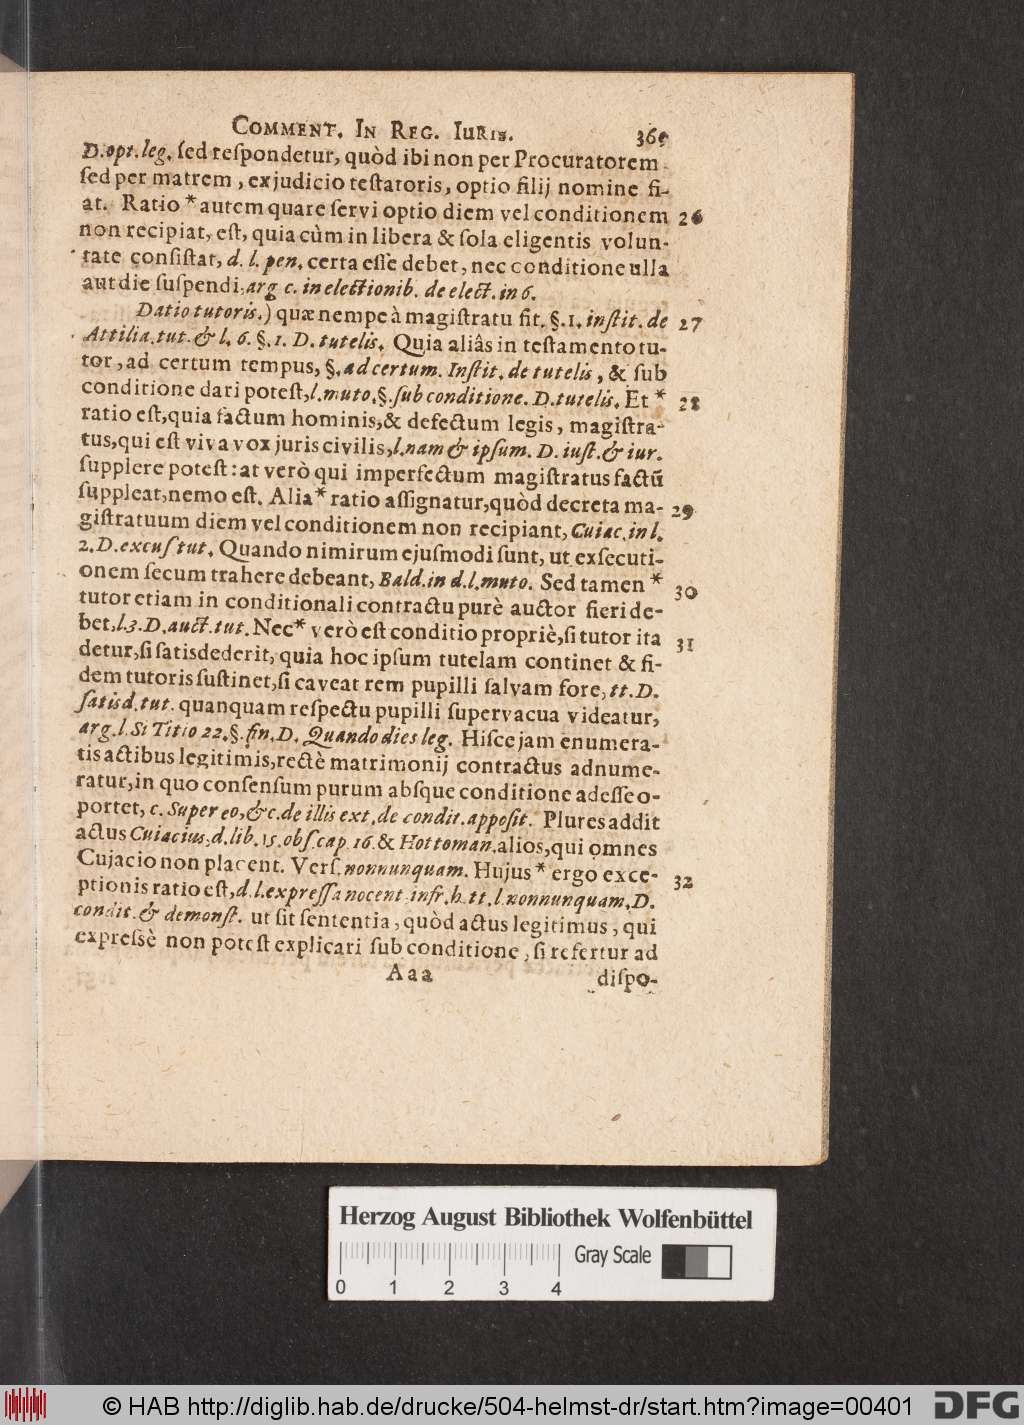 COMMENT. IN REG. IURIS. 369
D. opt. leg. ſed reſpondetur, quòd ibi non per Procuratorem
ſed per matrem, ex judicio teſtatoris, optio filij nomine fi-
at. Ratio * autem quare ſervi optio diem vel conditionem 26
non recipiat, eſt, quia cùm in libera & ſola eligentis volun-
tate conſiſtat, d. l. pen. certa eſſe debet, nec conditione ulla
aut die ſuſpendi, arg c. in electionib. de elect. in 6.
Datio tutoris.) quæ nempe à magiſtratu fit. §. 1. inſtit. de 27
Attilia. tut. & l. 6. §. 1. D. tutelis. Quia aliâs in teſtamento tu-
tor, ad certum tempus, §. ad certum. Inſtit. de tutelis, & ſub
conditione dari poteſt, l. muto. §. ſub conditione. D. tutelis. Et * 28
ratio eſt, quia factum hominis, & defectum legis, magiſtra-
tus, qui eſt viva vox juris civilis, l. nam & ipſum. D. iuſt. & iur.
ſupplere poteſt: at verò qui imperfectum magiſtratus factũ
ſuppleat, nemo eſt. Alia * ratio aſſignatur, quòd decreta ma- 29
giſtratuum diem vel conditionem non recipiant, Cuiac. in l.
2. D. excuſ tut. Quando nimirum ejuſmodi ſunt, ut exſecuti-
onem ſecum trahere debeant, Bald. in d. l. muto. Sed tamen * 30
tutor etiam in conditionali contractu purè auctor fieri de-
bet, l. 3. D. auct. tut. Nec * verò eſt conditio propriè, ſi tutor ita 31
detur, ſi ſatisdederit, quia hoc ipſum tutelam continet & fi-
dem tutoris ſuſtinet, ſi caveat rem pupilli ſalvam fore, tt. D.
ſatisd. tut. quanquam reſpectu pupilli ſupervacua videatur,
arg. l. Si Titio 22. §. fin. D. Quando dies leg. Hiſce jam enumera-
tis actibus legitimis, rectè matrimonij contractus adnume-
ratur, in quo conſenſum purum abſque conditione adeſſe o-
portet, c. Super eo, & c. de illis ext. de condit. appoſit. Plures addit
actus Cuiacius, d. lib. 15. obſ. cap. 16. & Hottoman. alios, qui omnes
Cujacio non placent. Verſ. nonnunquam. Hujus * ergo exce- 32
ptionis ratio eſt, d. l. expreſſa nocent infr. h. tt. l. nonnunquam. D.
condit. & demonſt. ut ſit ſententia, quòd actus legitimus, qui
expreſsè non poteſt explicari ſub conditione, ſi refertur ad
Aaa diſpo-
Herzog August Bibliothek Wolfenbüttel
Gray Scale
0 1 2 3 4
© HAB http://diglib.hab.de/drucke/504-helmst-dr/start.htm?image=00401
DFG